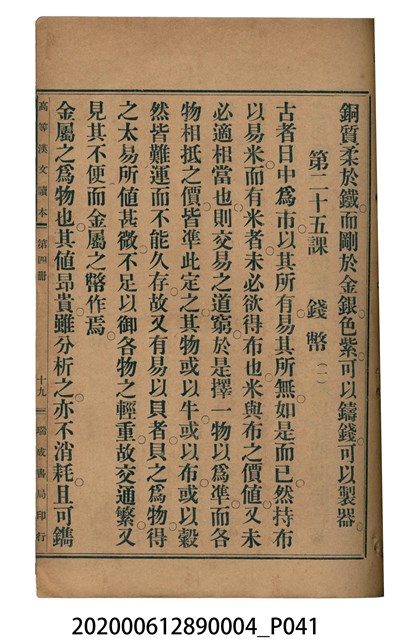 銅質柔於鐵而剛於金銀。色紫。可以鑄錢。可以製器。
第二十五課　錢幣（一）
古者日中爲市。以其所有。易其所無。如是而已。然持布
以易米。而有米者未必欲得布也。米與布之價値。又未
必適相當也。則交易之道窮。於是擇一物以爲準。而各
物相抵之價。皆準此定之。其物或以牛。或以布。或以穀。
然皆難運而不能久存。故又有易以貝者。貝之爲物。得
之太易。所値甚微。不足以御各物之輕重。故交通繁。又
見其不便。而金屬之幣作焉。
金屬之爲物也。其値昂貴。雖分析之。亦不消耗。且可鐫
高等漢文讀本　第四册　十九　瑞成書局印行
202000612890004_P041